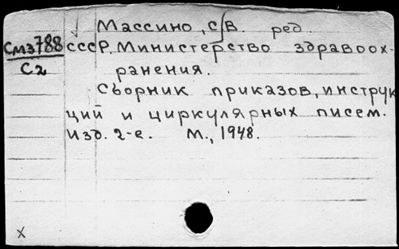 Массино, С.В. ред.
См3788 СССР. Министерство здравоох-
С2 ранения.
Сборник приказов, инструк
ций и циркулярных писем.
Изд. 2-е. М., 1948.
х